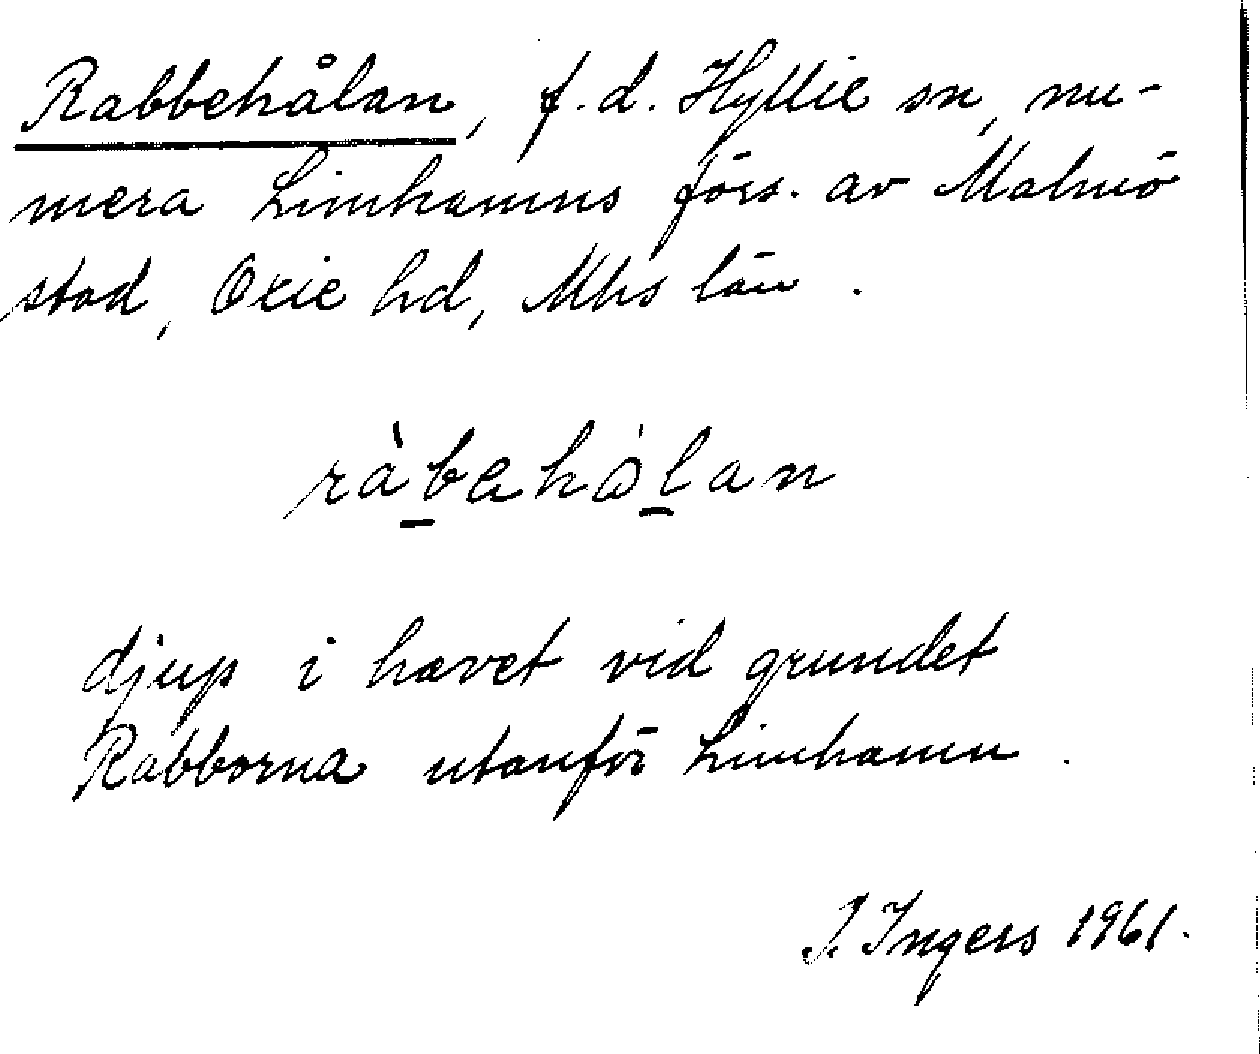 Rabbehålan, f.d. Hyllie sn, nu-
mera Limhamns förs. av Malmö
stad, Oxie hd, Mhs län.
ràbahålan
djup i havet vid grundet
Rabborna utanför Limhamn.
I. Ingers 1961.